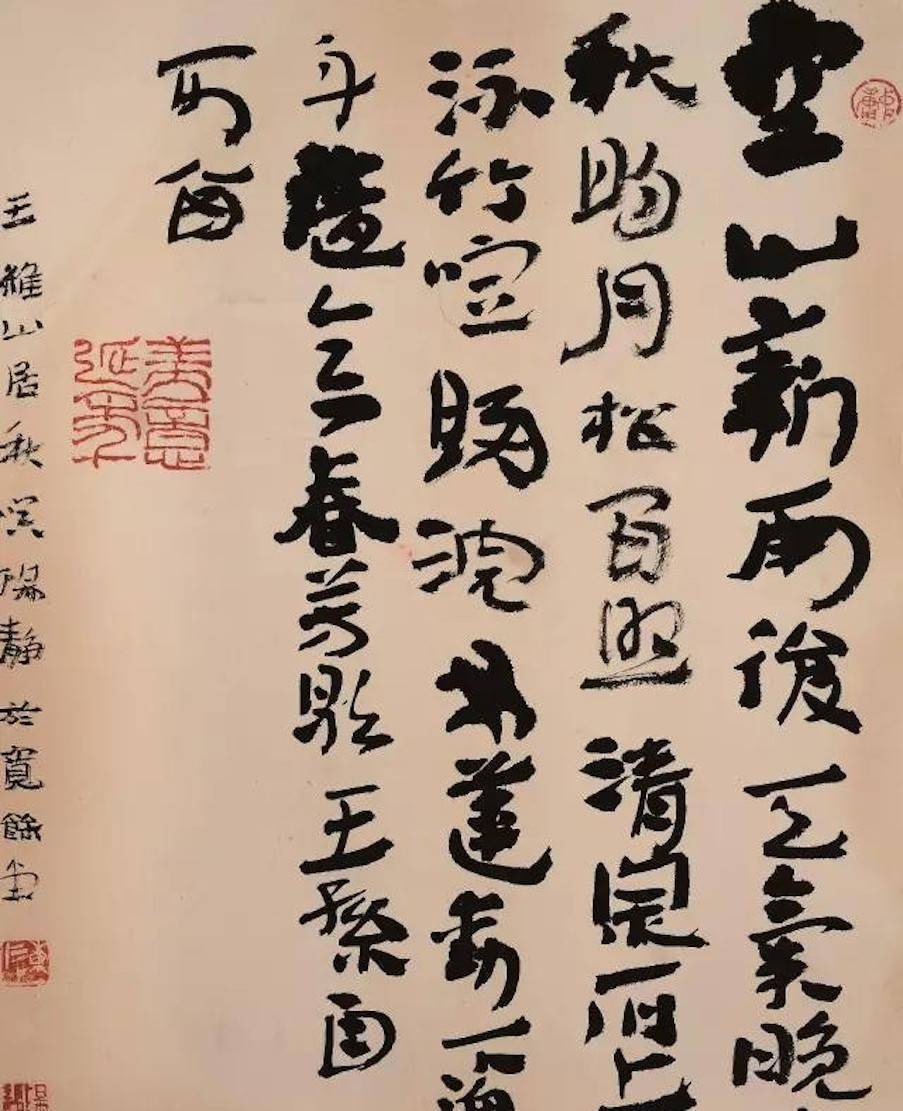 空山新雨後天氣晚
秋明月松間照清泉石上
流竹喧歸浣女蓮動下漁
舟隨意春芳歇王孫自
可留
美意延年
王維山居秋暝 靜於寬餘堂